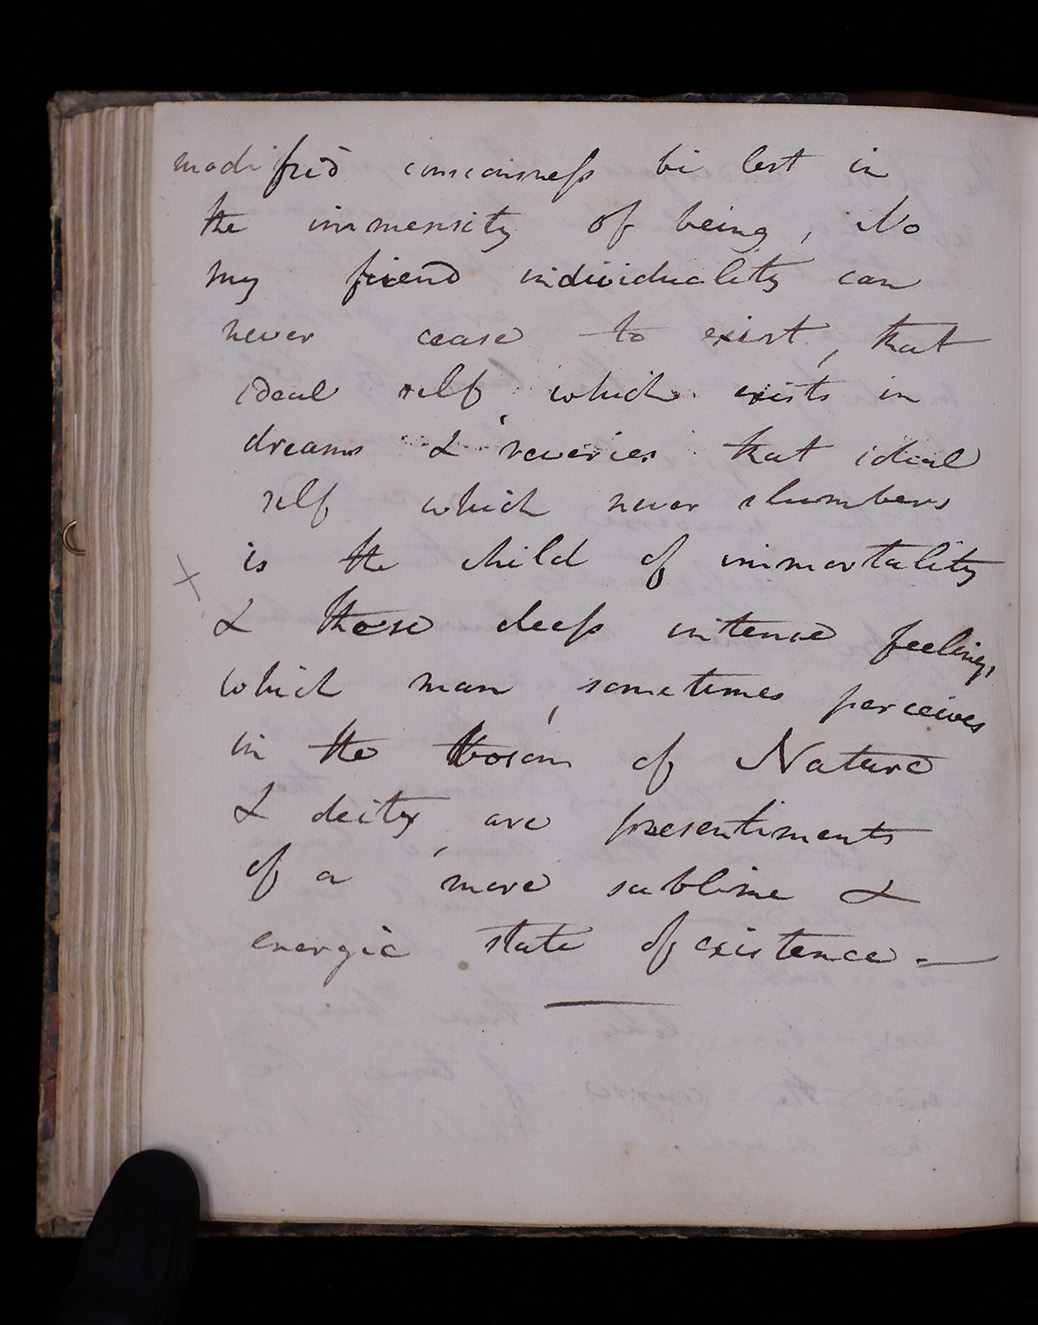 modified consciousness be lost in
the immensity of being, No
my friend individuality can
never cease to exist, that
ideal self which exists in
dreams & reveries that ideal
self which never slumbers
is the child of immortality
x
& those deep intense feelings,
which man sometimes perceives
in the bosom of Nature
& deity are presentiments
of a more sublime &
energic state of existence. —